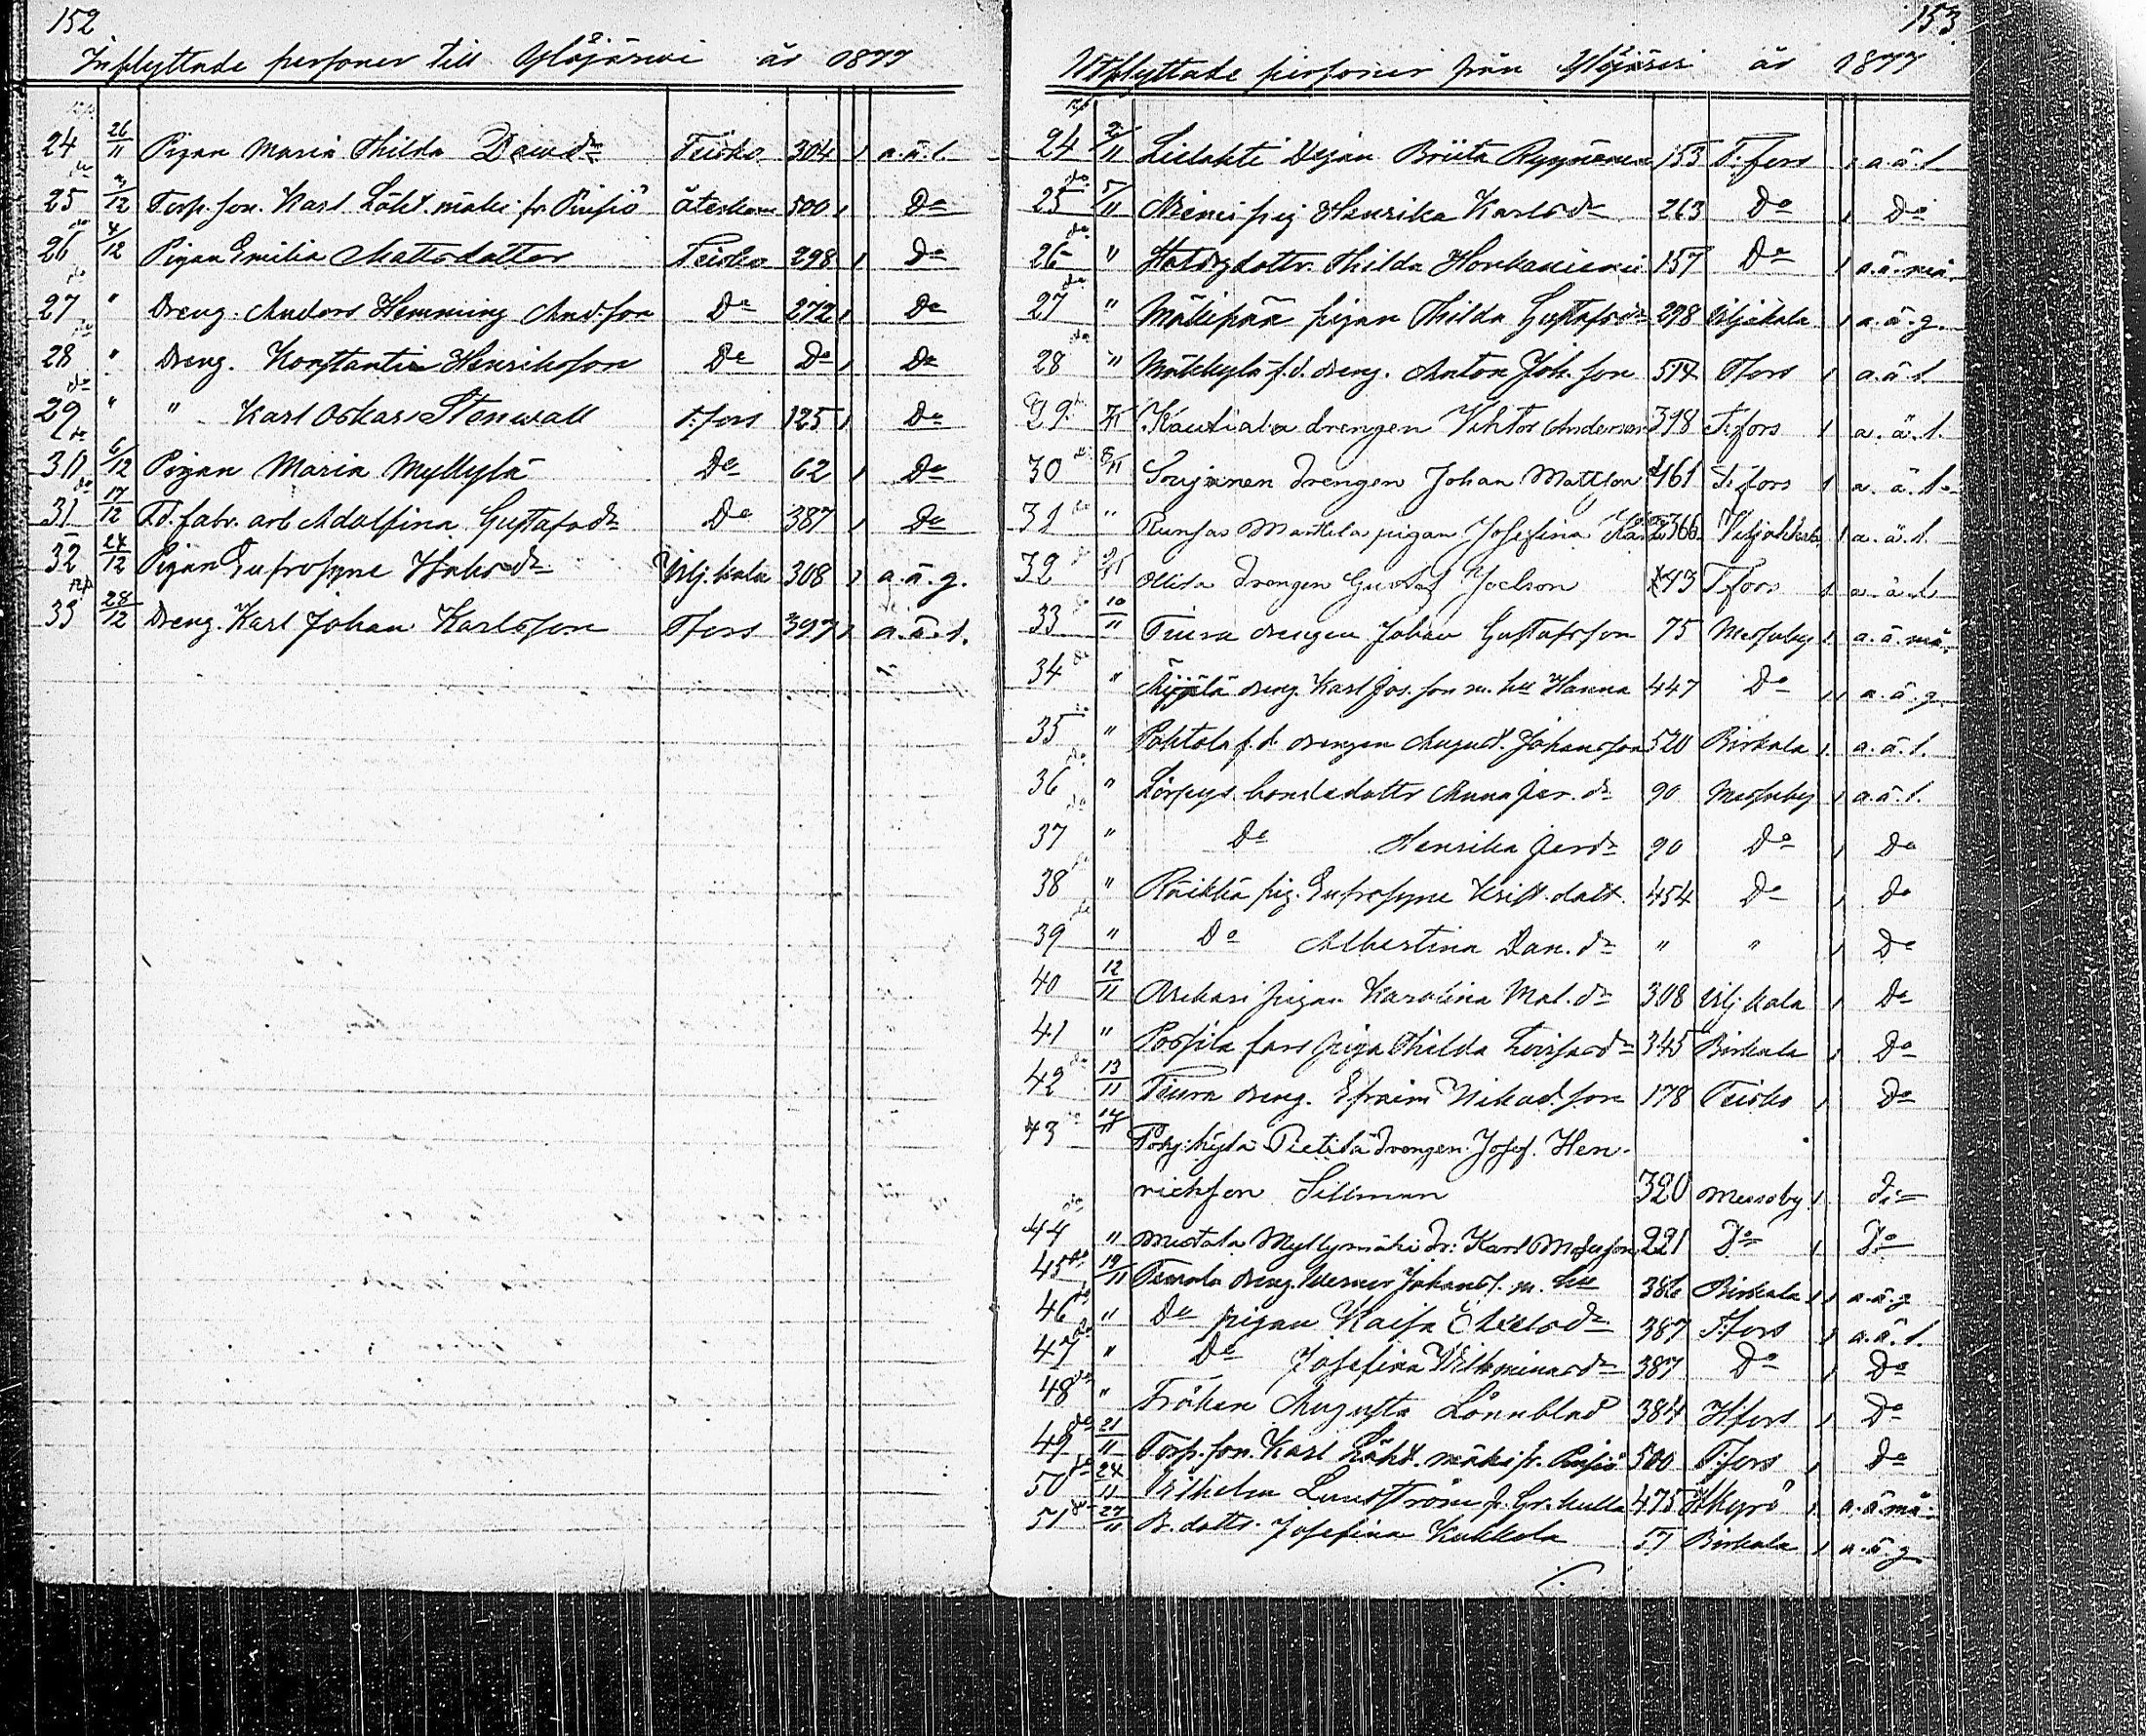 152
Inflyttade personer till Ylöjärvi år 1877
24 26/11 Pigan Maria Thilda Davidsdr Teisko 304 1 a.ä.l.
25 3/12 Torp.son. Karl Läht.mäki fr. Pinsiö återkom 500 1 Do
26 4/12 Pigan Emilia Mattsdotter Teisko 298 1 Do
27 " Dreng. Anders Hemming And.son Do 272 1 Do
28 " Dreng. Konstantin Henriksson Do Do 1 Do
29 " " Karl Oskar Stenwall T.fors 125 1 Do
30 6/12 Pigan Maria Myllylä Do 62 1 Do
31 17/12 F.d. fabr. arb Adolfina Gustafsdr Do 387 1 Do
32 24/12 Pigan Eufrosyne Isaksdr Vilj.kala 308 1 a.ä.g.
33 28/12 Dreng. Karl Johan Karlsson Tfors 397 1 a.ä.l.
153
Utflyttade personer från Ylöjärvi år 1877
24 2/11 Lielahti Dejan Briita Ryynänen 153 T.fors 1 a.ä.l.
25 5/11 Niemi pig Henrika Karlsdr 263 Do 1 Do
26 " Hatdgdottr. Thilda Honkaniemi 157 Do 1 a.ä.må.
27 " Mäkipää pigan Thilda Gustafsdr 298 Viljakala 1 a.ä.g.
28 " Mäkkylä f.d. dreng. Anton Joh.son 514 Tfors 1 a.ä.l.
29 7/11 Kautiala drengen Viktor Anderson 318 T.fors 1 a.ä.l.
30 8/11 Sorjanen drengen Johan Mattson 461 T.fors 1 a.ä.l.
31 " Runsas Mattila pigan Josefina Karlsdr 366 Viljakkala 1 a.ä.l.
32 9/11 Ollila drengen Gustaf Joelson 93 T.fors 1 a.ä.l.
33 10/11 Tiura drengen Johan Gustafsson 75 Messuby 1 a.ä.må.
34 " Äijälä dreng. Karl Jos.son m. hu Hanna 447 Do 1 1 a.ä.g.
35 " Pohtola f.d. drengen August Johansson 520 Birkala 1 a.ä.l.
36 " Lörpys bondedottr Anna Jer.dr 90 Messuby 1 a.ä.l.
37 " Do Henrika Jerdr 90 Do 1 Do
38 " Räikkä pig. Eufrosyne Krist.dott. 454 Do 1 Do
39 " Do Albertina Dan.dr " " 1 Do
40 12/11 Asikari pigan Karolina Mat.dr 308 Vilj.kala 1 Do
41 " Possila fars piga Thilda Lovisasdr 345 Birkala 1 Do
42 13/11 Tiura dreng. Efraim Nikod.son 178 Teisko 1 Do
43 14/11 Pohj:kylä Pietilä drengen Josef. Hen-
richson Sillman 320 Messoby 1 Do
44 " Mustala Myllymäki dr: Karl Mosesson 221 Do 1 Do
45 19/11 Teurola dreng. Werner Johanss. m. hu 386 Birkala 1 1 a.ä.g
46 " Do pigan Kaisa Mellsdr 387 T.fors 1 a.ä.l.
47 " Do Josefina Wilhminasdr 387 Do 1 Do
48 " Fröken Augusta Lönnblad 384 H.fors 1 Do
49 21/11 Torp.son. Karl Läht.mäki fr. Pinsiö 500 T.fors 1 Do
50 24/11 Wilhelm Lundström fr. Gr.kulla 475 H.kyrö 1 a.ä.må.
51 27/11 B.dottr. Josefina Kukkola 57 Birkala 1 a.ä.g